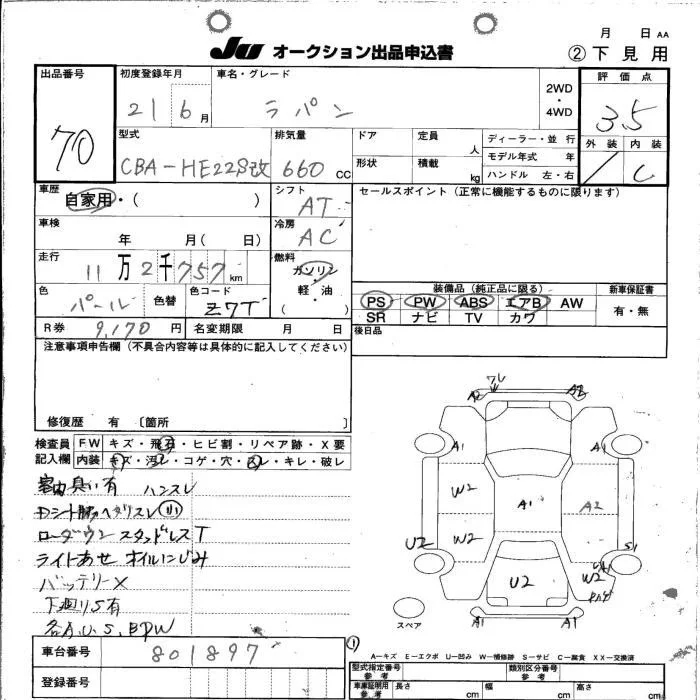 月 日 AA
JU オークション出品申込書
② 下見用
出品番号
70
初度登録年月
21 6 月
車名・グレード
ラパン
2WD・4WD
評価点
3.5
外装 内装
C
型式
CBA-HE22S改
排気量
660 CC
ドア
定員 人
ディーラー・並行
モデル年式 年
形状
積載 kg
ハンドル 左・右
車歴
自家用・( )
シフト
AT
セールスポイント (正常に機能するものに限ります)
車検
年 月( 日)
冷房
AC
走行
11万2千757 km
燃料
ガソリン・軽油
( )
色
パール
色替
色コード
Z7T
装備品 (純正品に限る)
新車保証書
PS PW ABS エアB AW
有・無
SR ナビ TV カワ
R券 9,170 円
名変期限 月 日
後日品
注意事項申告欄 (不具合内容等は具体的に記入してください)
修復歴 有 〔箇所 〕
検査員記入欄
FW キズ・飛石・ヒビ割・リペア跡・X要
内装 キズ・汚レ・コゲ・穴・スレ・キレ・破レ
室内臭い有 ハンスレ
ローダウン スタッドレスT
ライトあせ オイルにじみ
バッテリーX
下廻りS有
各A.U.S.BPW
A2
A1
A1
W2
A1
A2
U2
W2
S1
U2
A1
W2
A1
A1
スペア
車台番号
801897
登録番号
①
A-キズ E-エクボ U-凹み W-補修跡 S-サビ C-腐食 XX-交換済
型式指定番号 参考
類別区分番号 参考
車庫証明用 参考
長さ cm
幅 cm
高さ cm